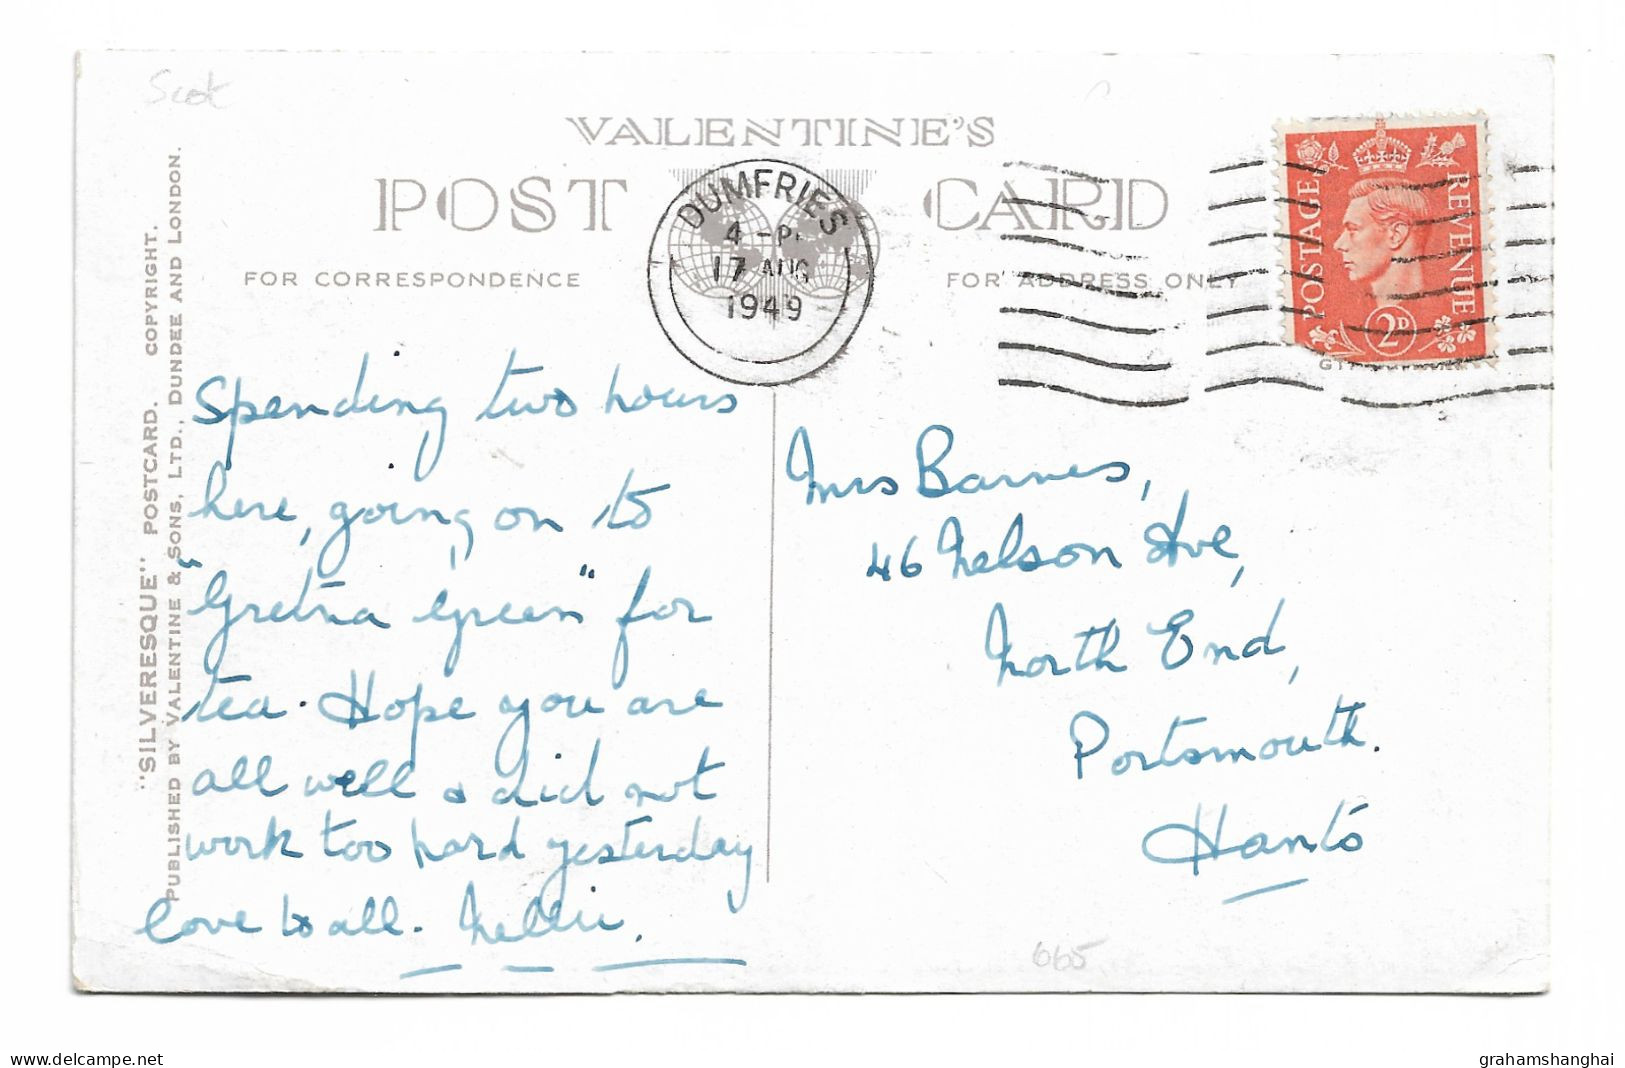 Scot
VALENTINE'S
POST CARD
FOR CORRESPONDENCE
FOR ADDRESS ONLY
DUMFRIES
4 - P
17 AUG
1949
POSTAGE
REVENUE
2D
"SILVERESQUE" POSTCARD. COPYRIGHT.
PUBLISHED BY VALENTINE & SONS, LTD., DUNDEE AND LONDON.
Spending two hours
here, going on to
"Gretna Green" for
tea. Hope you are
all well & did not
work too hard yesterday
love to all. Nellie.
Mrs Barnes,
46 Nelson Ave,
North End,
Portsmouth.
Hants
665
www.delcampe.net
grahamshanghai